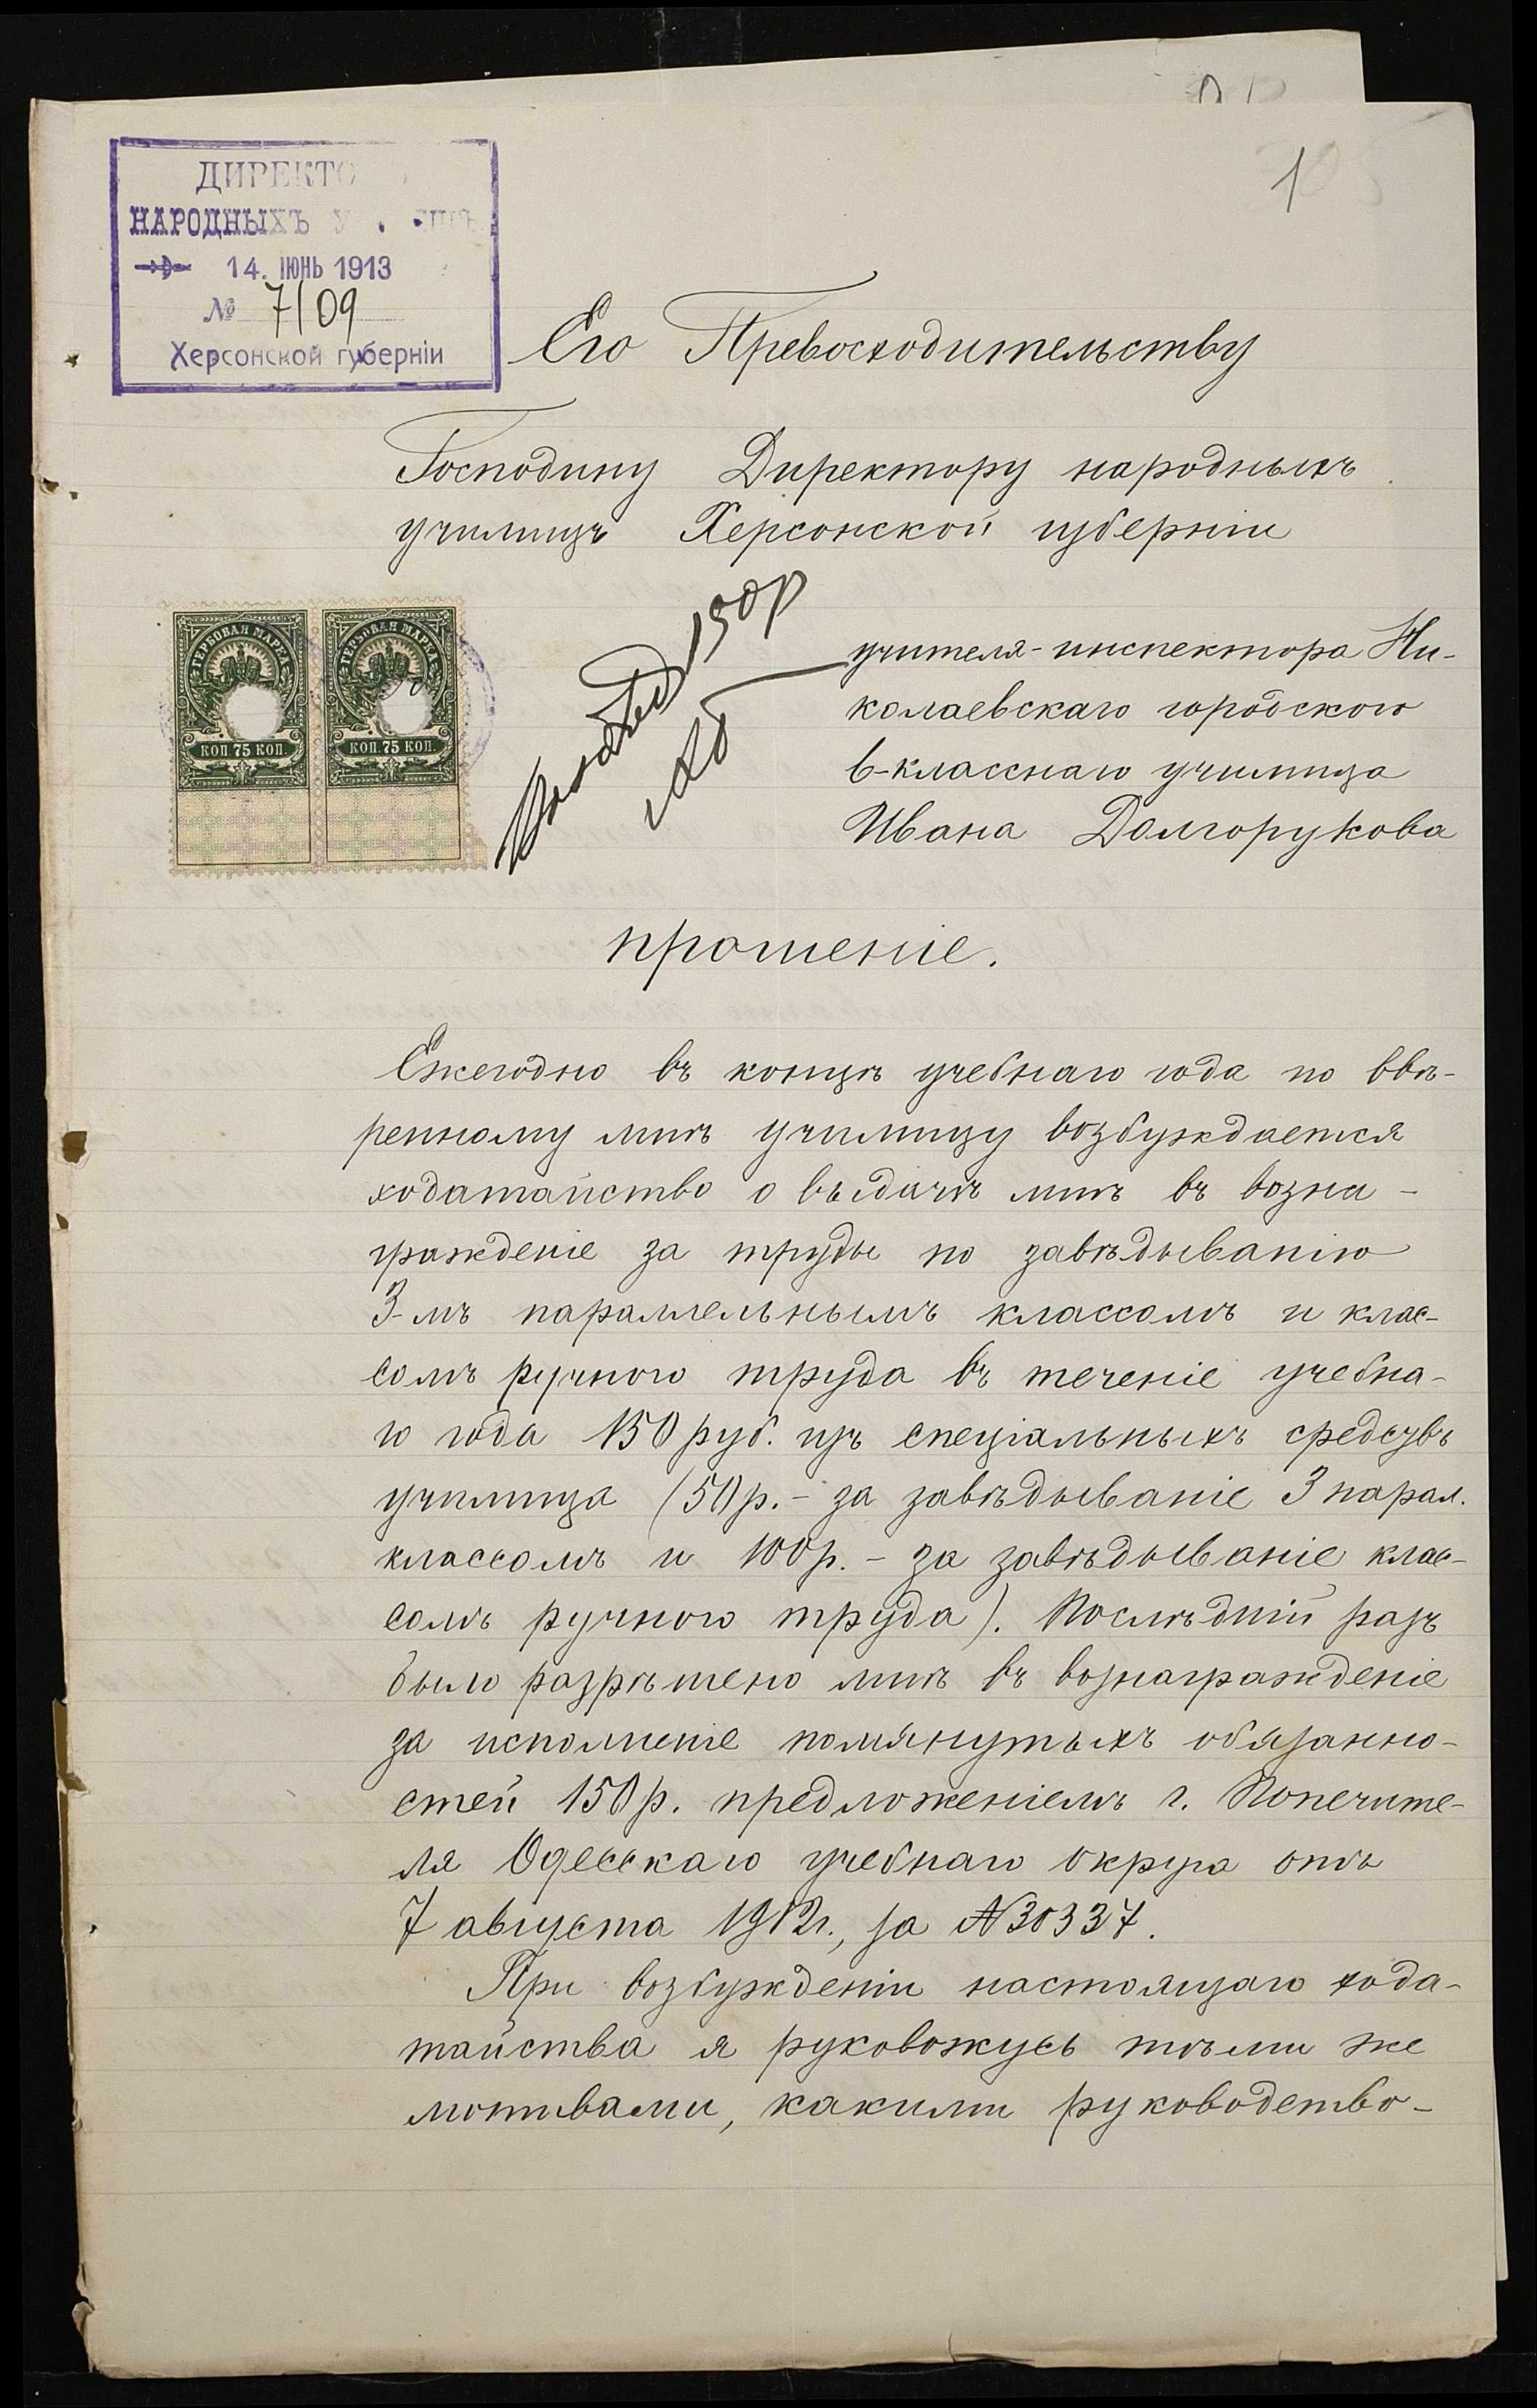 1
ДИРЕКТО
НАРОДНЫХЪ
14. ІЮНЬ 1913
№ 7109
Херсонской губерніи
Его Превосходительству
Господину Директору народныхъ
училищъ Херсонской губерніи
ГЕРБОВАЯ МАРКА
КОП 75 КОП.
ГЕРБОВАЯ МАРКА
КОП. 75 КОП.
150 р
учителя-инспектора Ни-
колаевскаго городского
6-класснаго училища
Ивана Долгорукова
прошеніе.
Ежегодно въ концѣ учебнаго года по ввѣ-
ренному мнѣ училищу возбуждается
ходатайство о выдачѣ мнѣ въ возна-
гражденіе за труды по завѣдыванію
3-мъ параллельнымъ классомъ и клас-
сомъ ручного труда въ теченіе учебна-
го года 150 руб. изъ спеціальныхъ средсвъ
училища (50 р. - за завѣдываніе 3 парал.
классомъ и 100 р. - за завѣдываніе клас-
сомъ ручного труда). Послѣдній разъ
было разрѣшено мнѣ въ вознагражденіе
за исполненіе помянутыхъ обязанно-
стей 150 р. предложеніемъ г. Попечите-
ля Одесскаго учебнаго округа отъ
7 августа 1912 г., за № 30337.
При возбужденіи настоящаго хода-
тайства я руковожусь тѣми же
мотивами, какими руководство-